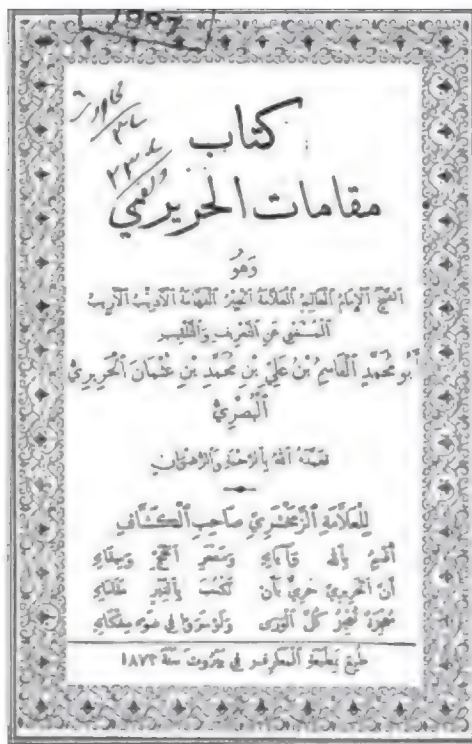 كتاب
مقامات الحريري
وَهُوَ
الشيخ الإمام العالم العلامة الحبر الفهامة الأديب الأريب
المستغني عن التعريف والتلقيب
أَبُو مُحَمَّدٍ القَاسِمُ بْنُ عَلِيِّ بْنِ مُحَمَّدِ بْنِ عُثْمَانَ الحَرِيرِيُّ
البَصْرِيُّ
تغمده الله بالرحمة والرضوان
لِلعَلَّامَةِ الزَّمَخْشَرِيِّ صَاحِبِ الكَشَّافِ
أقسم بالله وآياته ومشعر الحج وميقاته
أن الحريري حري بأن تكتب بالتبر مقاماته
معجزة تعجز كل الورى ولو سروا في ضوء مشكاته
طبع بمطبعة المعارف في بيروت سنة ١٨٧٣